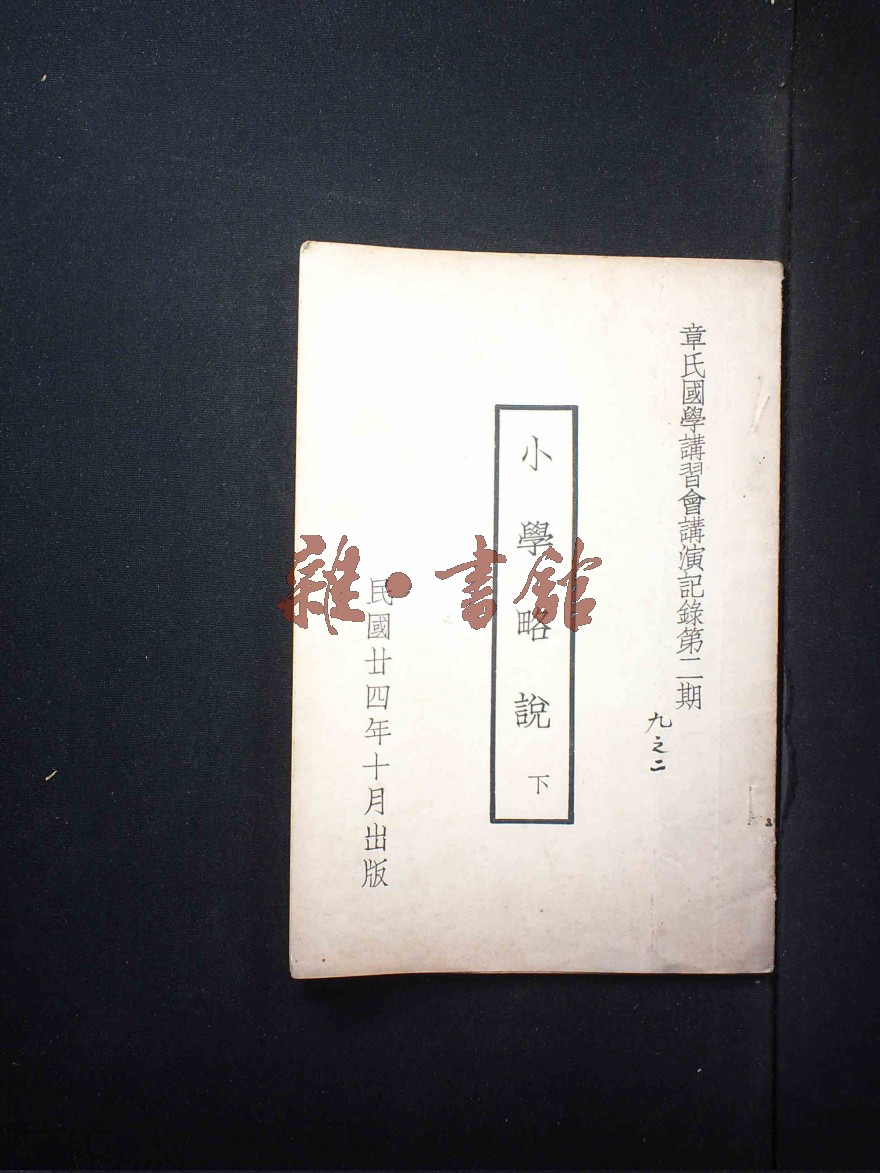 章氏國學講習會講演記錄第二期
九之二
小學略說 下
民國廿四年十月出版
雜·書館